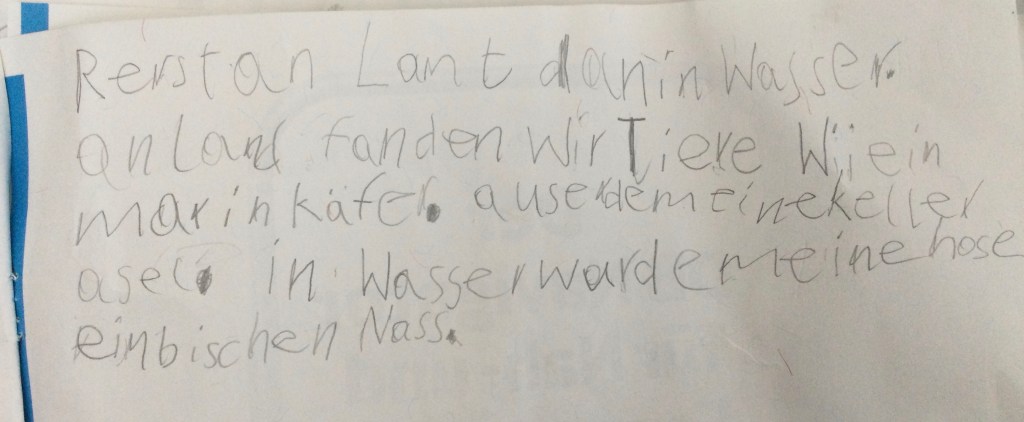 Rerstan Lant danin Wasser.
anLand fanden wir Tiere Wiein
marinkäfer. auserdemeinekeller
asel. in Wasserwurdemeinehose
einbischen Nass.